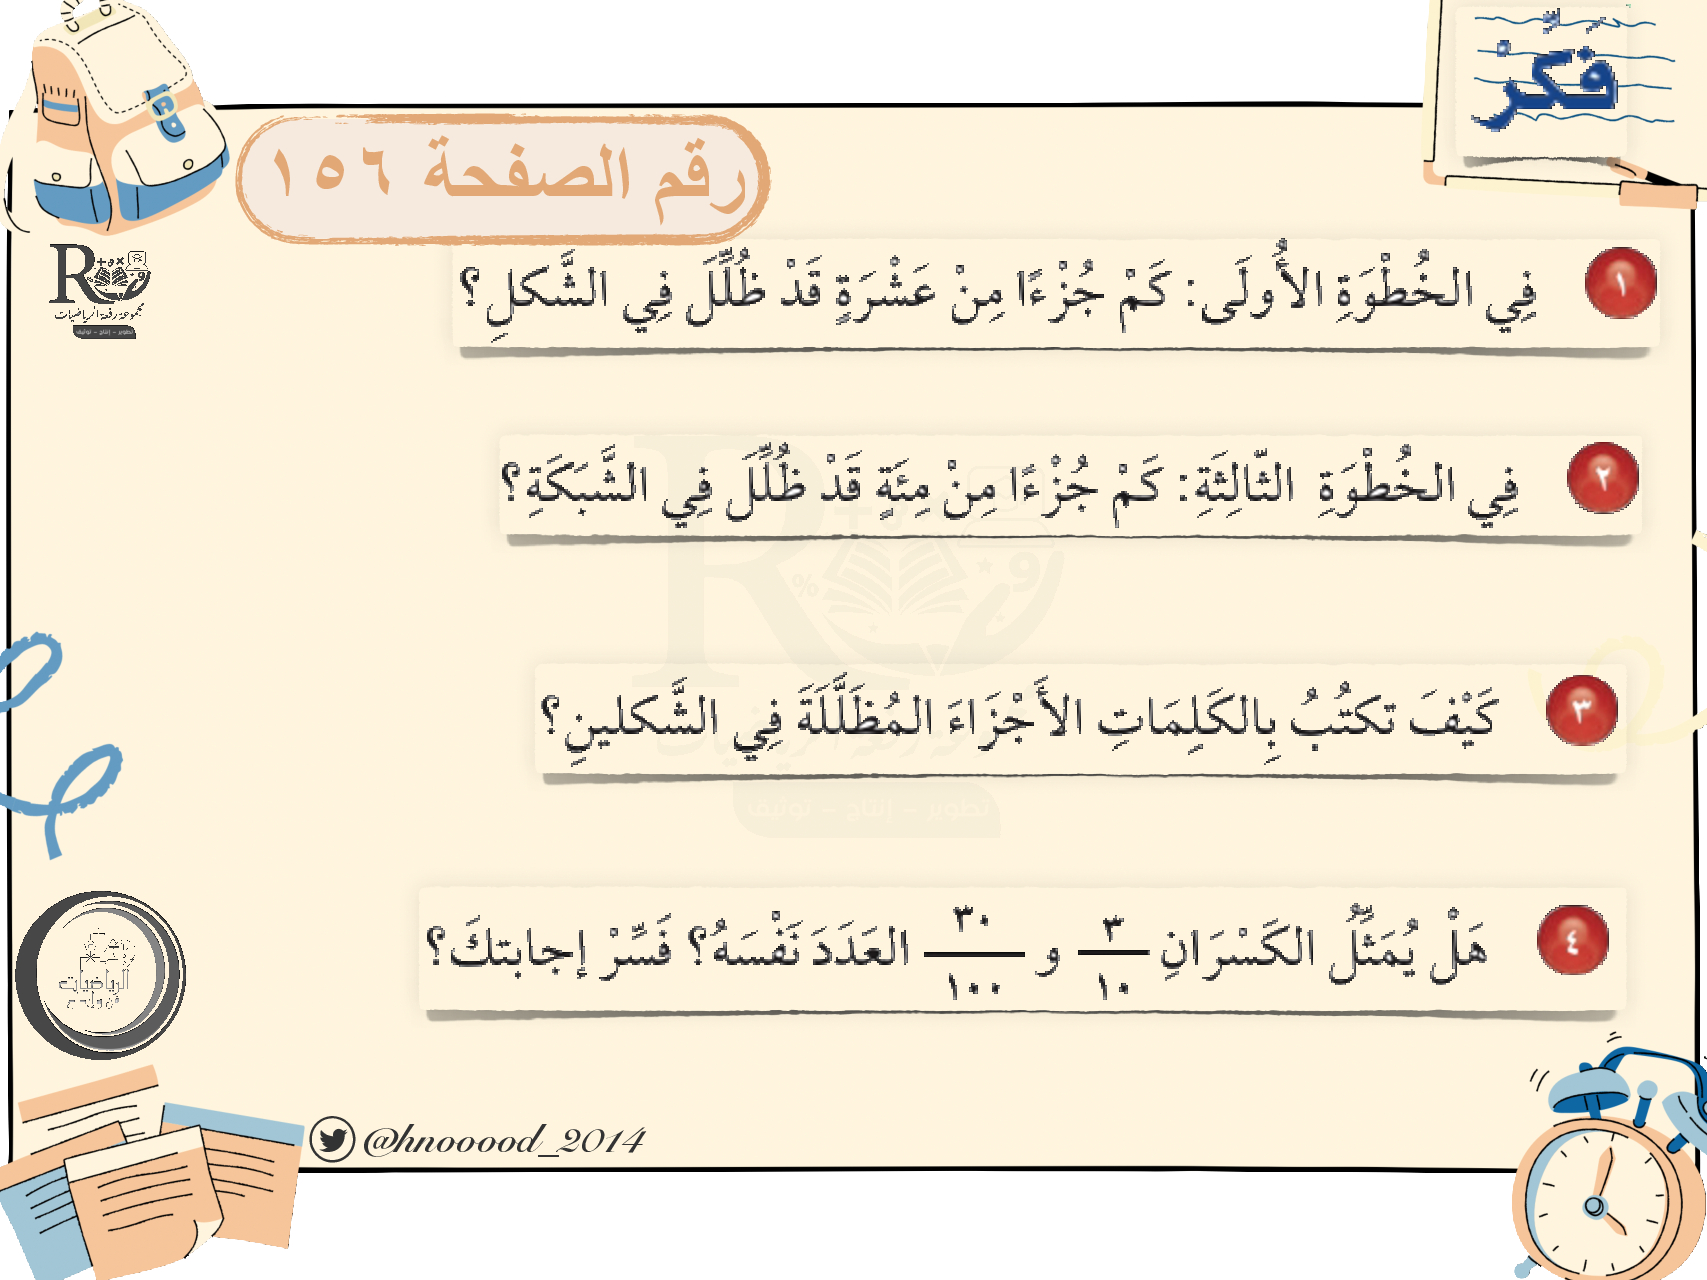 فَكِّرْ
رقم الصفحة ١٥٦
R
مجموعة رفعة الرياضيات
تطوير - إنتاج - توثيق
١ فِي الخُطْوَةِ الأُولَى: كَمْ جُزْءًا مِنْ عَشْرَةٍ قَدْ ظُلِّلَ فِي الشَّكلِ؟
٢ فِي الخُطْوَةِ الثّالِثَةِ: كَمْ جُزْءًا مِنْ مِئَةٍ قَدْ ظُلِّلَ فِي الشَّبَكَةِ؟
٣ كَيْفَ تكتُبُ بِالكَلِمَاتِ الأَجْزَاءَ المُظَلَّلَةَ فِي الشَّكلينِ؟
٤ هَلْ يُمَثِّلُ الكَسْرَانِ ٣/١٠ و ٣٠/١٠٠ العَدَدَ نَفْسَهُ؟ فَسِّرْ إجابتكَ؟
الرياضيات
@hnooood_2014